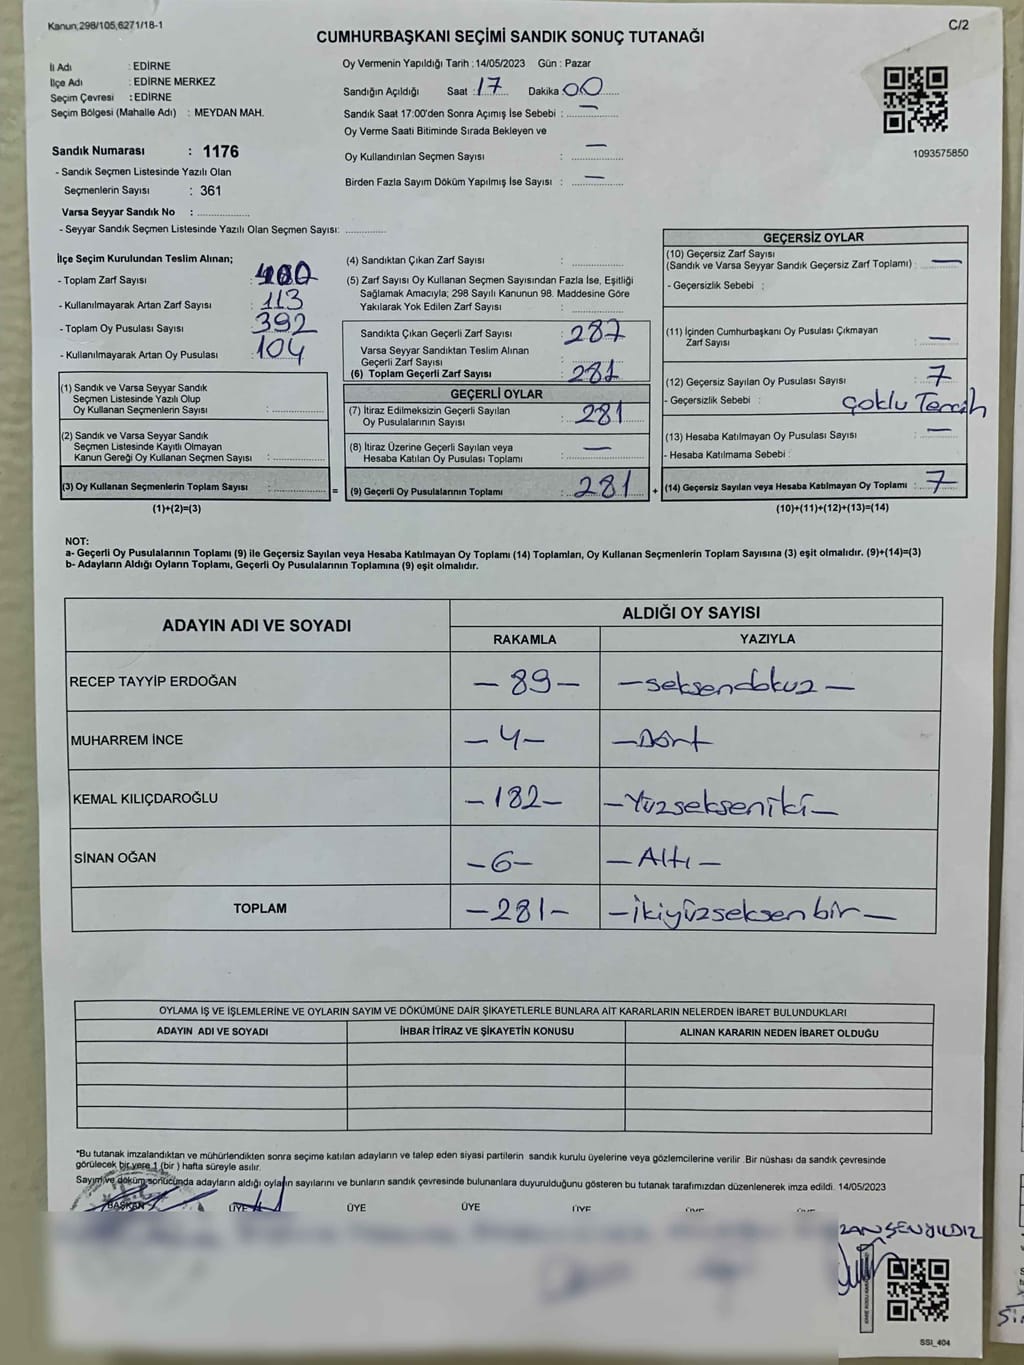 Kanun:298/105,6271/18-1
C/2
CUMHURBAŞKANI SEÇİMİ SANDIK SONUÇ TUTANAĞI
İl Adı : EDİRNE
İlçe Adı : EDİRNE MERKEZ
Seçim Çevresi : EDİRNE
Seçim Bölgesi (Mahalle Adı) : MEYDAN MAH.
Sandık Numarası : 1176
- Sandık Seçmen Listesinde Yazılı Olan
Seçmenlerin Sayısı : 361
Varsa Seyyar Sandık No :
- Seyyar Sandık Seçmen Listesinde Yazılı Olan Seçmen Sayısı:
Oy Vermenin Yapıldığı Tarih : 14/05/2023 Gün : Pazar
Sandığın Açıldığı Saat : 17 Dakika 00
Sandık Saat 17:00'den Sonra Açımış İse Sebebi : —
Oy Verme Saati Bitiminde Sırada Bekleyen ve
Oy Kullandırılan Seçmen Sayısı : —
Birden Fazla Sayım Döküm Yapılmış İse Sayısı : —
1093575850
İlçe Seçim Kurulundan Teslim Alınan;
- Toplam Zarf Sayısı : 400
- Kullanılmayarak Artan Zarf Sayısı : 113
- Toplam Oy Pusulası Sayısı : 392
- Kullanılmayarak Artan Oy Pusulası : 104
(1) Sandık ve Varsa Seyyar Sandık
Seçmen Listesinde Yazılı Olup
Oy Kullanan Seçmenlerin Sayısı :
(2) Sandık ve Varsa Seyyar Sandık
Seçmen Listesinde Kayıtlı Olmayan
Kanun Gereği Oy Kullanan Seçmen Sayısı :
(3) Oy Kullanan Seçmenlerin Toplam Sayısı :
(1)+(2)=(3)
=
(4) Sandıktan Çıkan Zarf Sayısı :
(5) Zarf Sayısı Oy Kullanan Seçmen Sayısından Fazla İse, Eşitliği
Sağlamak Amacıyla; 298 Sayılı Kanunun 98. Maddesine Göre
Yakılarak Yok Edilen Zarf Sayısı :
Sandıkta Çıkan Geçerli Zarf Sayısı : 287
Varsa Seyyar Sandıktan Teslim Alınan
Geçerli Zarf Sayısı :
(6) Toplam Geçerli Zarf Sayısı : 281
GEÇERLİ OYLAR
(7) İtiraz Edilmeksizin Geçerli Sayılan
Oy Pusulalarının Sayısı : 281
(8) İtiraz Üzerine Geçerli Sayılan veya
Hesaba Katılan Oy Pusulası Toplamı : —
(9) Geçerli Oy Pusulalarının Toplamı : 281
+
GEÇERSİZ OYLAR
(10) Geçersiz Zarf Sayısı
(Sandık ve Varsa Seyyar Sandık Geçersiz Zarf Toplamı) : —
- Geçersizlik Sebebi :
(11) İçinden Cumhurbaşkanı Oy Pusulası Çıkmayan
Zarf Sayısı : —
(12) Geçersiz Sayılan Oy Pusulası Sayısı : 7
- Geçersizlik Sebebi : Çoklu Tercih
(13) Hesaba Katılmayan Oy Pusulası Sayısı : —
- Hesaba Katılmama Sebebi :
(14) Geçersiz Sayılan veya Hesaba Katılmayan Oy Toplamı : 7
(10)+(11)+(12)+(13)=(14)
NOT:
a- Geçerli Oy Pusulalarının Toplamı (9) ile Geçersiz Sayılan veya Hesaba Katılmayan Oy Toplamı (14) Toplamları, Oy Kullanan Seçmenlerin Toplam Sayısına (3) eşit olmalıdır. (9)+(14)=(3)
b- Adayların Aldığı Oyların Toplamı, Geçerli Oy Pusulalarının Toplamına (9) eşit olmalıdır.
ADAYIN ADI VE SOYADI ALDIĞI OY SAYISI
RAKAMLA YAZIYLA
RECEP TAYYİP ERDOĞAN — 89 — — seksendokuz —
MUHARREM İNCE — 4 — — Dört
KEMAL KILIÇDAROĞLU — 182 — — Yüzsekseniki —
SİNAN OĞAN — 6 — — Altı —
TOPLAM — 281 — — ikiyüzseksenbir —
OYLAMA İŞ VE İŞLEMLERİNE VE OYLARIN SAYIM VE DÖKÜMÜNE DAİR ŞİKAYETLERLE BUNLARA AİT KARARLARIN NELERDEN İBARET BULUNDUKLARI
ADAYIN ADI VE SOYADI İHBAR İTİRAZ VE ŞİKAYETİN KONUSU ALINAN KARARIN NEDEN İBARET OLDUĞU
*Bu tutanak imzalandıktan ve mühürlendikten sonra seçime katılan adayların ve talep eden siyasi partilerin sandık kurulu üyelerine veya gözlemcilerine verilir .Bir nüshası da sandık çevresinde
görülecek bir yere 1 (bir ) hafta süreyle asılır.
Sayım ve döküm sonucunda adayların aldığı oyların sayılarını ve bunların sandık çevresinde bulunanlara duyurulduğunu gösteren bu tutanak tarafımızdan düzenlenerek imza edildi. 14/05/2023
BAŞKAN ÜYE ÜYE ÜYE ÜYE ÜYE
ZAN ŞENYILDIZ
SSI_404